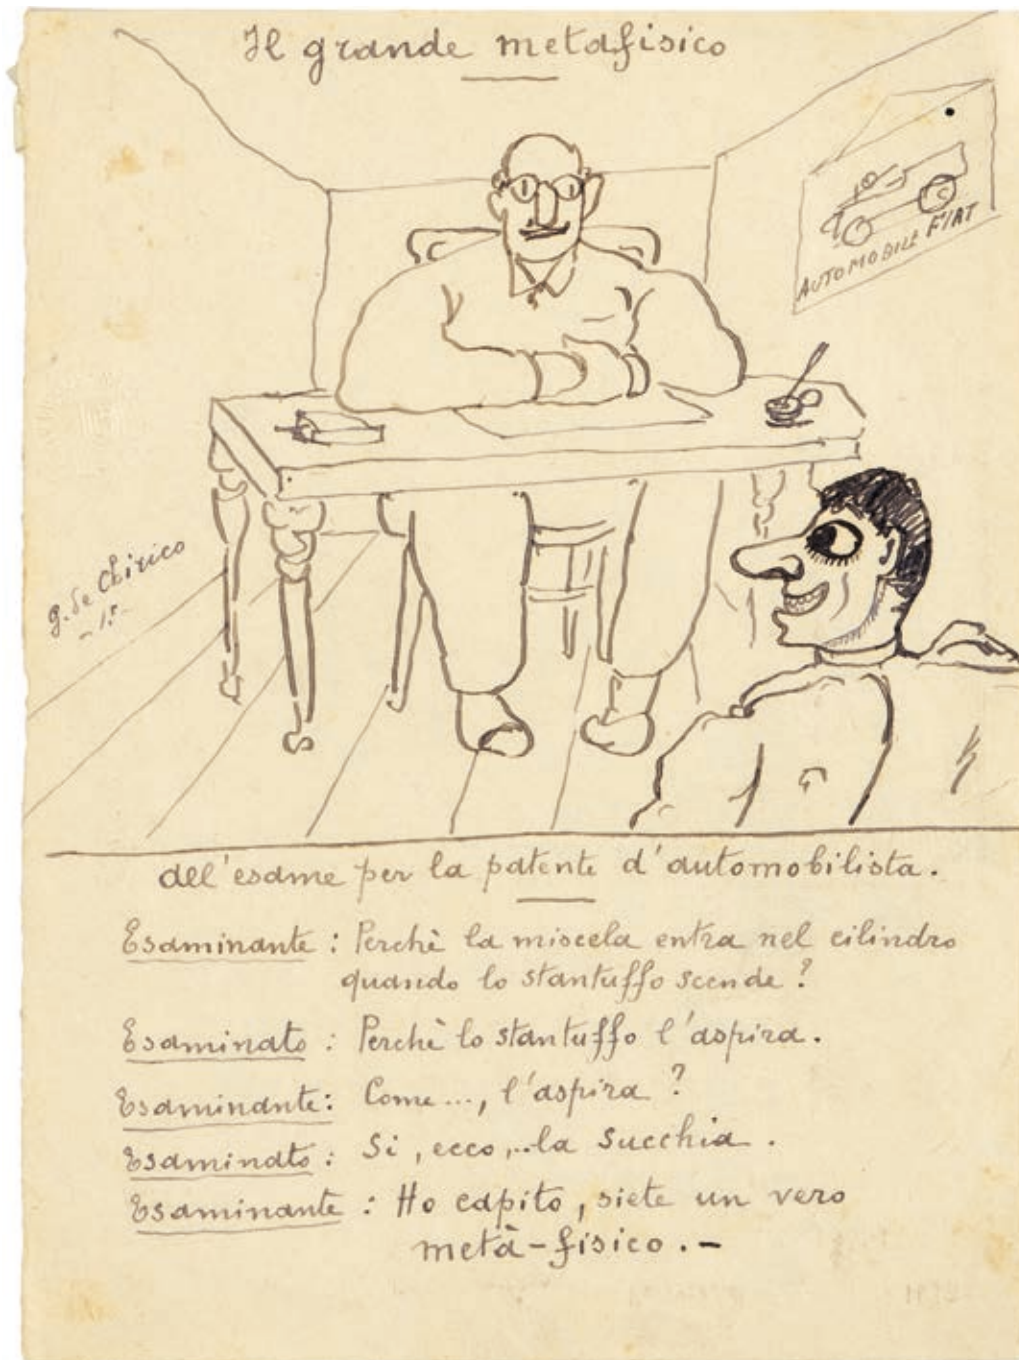 Il grande metafisico
AUTOMOBILE FIAT
g. de Chirico
- 15 -
dell'esame per la patente d'automobilista.
Esaminante : Perchè la miscela entra nel cilindro
quando lo stantuffo scende ?
Esaminato : Perchè lo stantuffo l'aspira.
Esaminante : Come..., l'aspira ?
Esaminato : Si, ecco,..la succhia .
Esaminante : Ho capito, siete un vero
metà-fisico . -